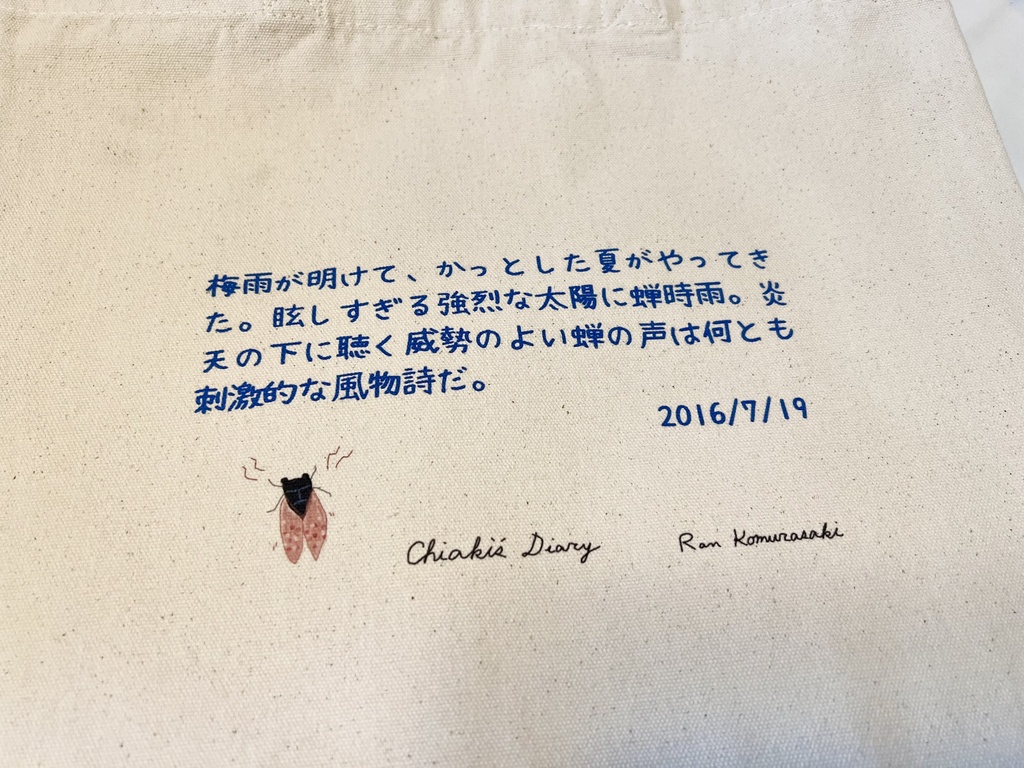 梅雨が明けて、かっとした夏がやってき
た。眩しすぎる強烈な太陽に蝉時雨。炎
天の下に聴く威勢のよい蝉の声は何とも
刺激的な風物詩だ。
2016/7/19
Chiaki's Diary
Ran Komurasaki